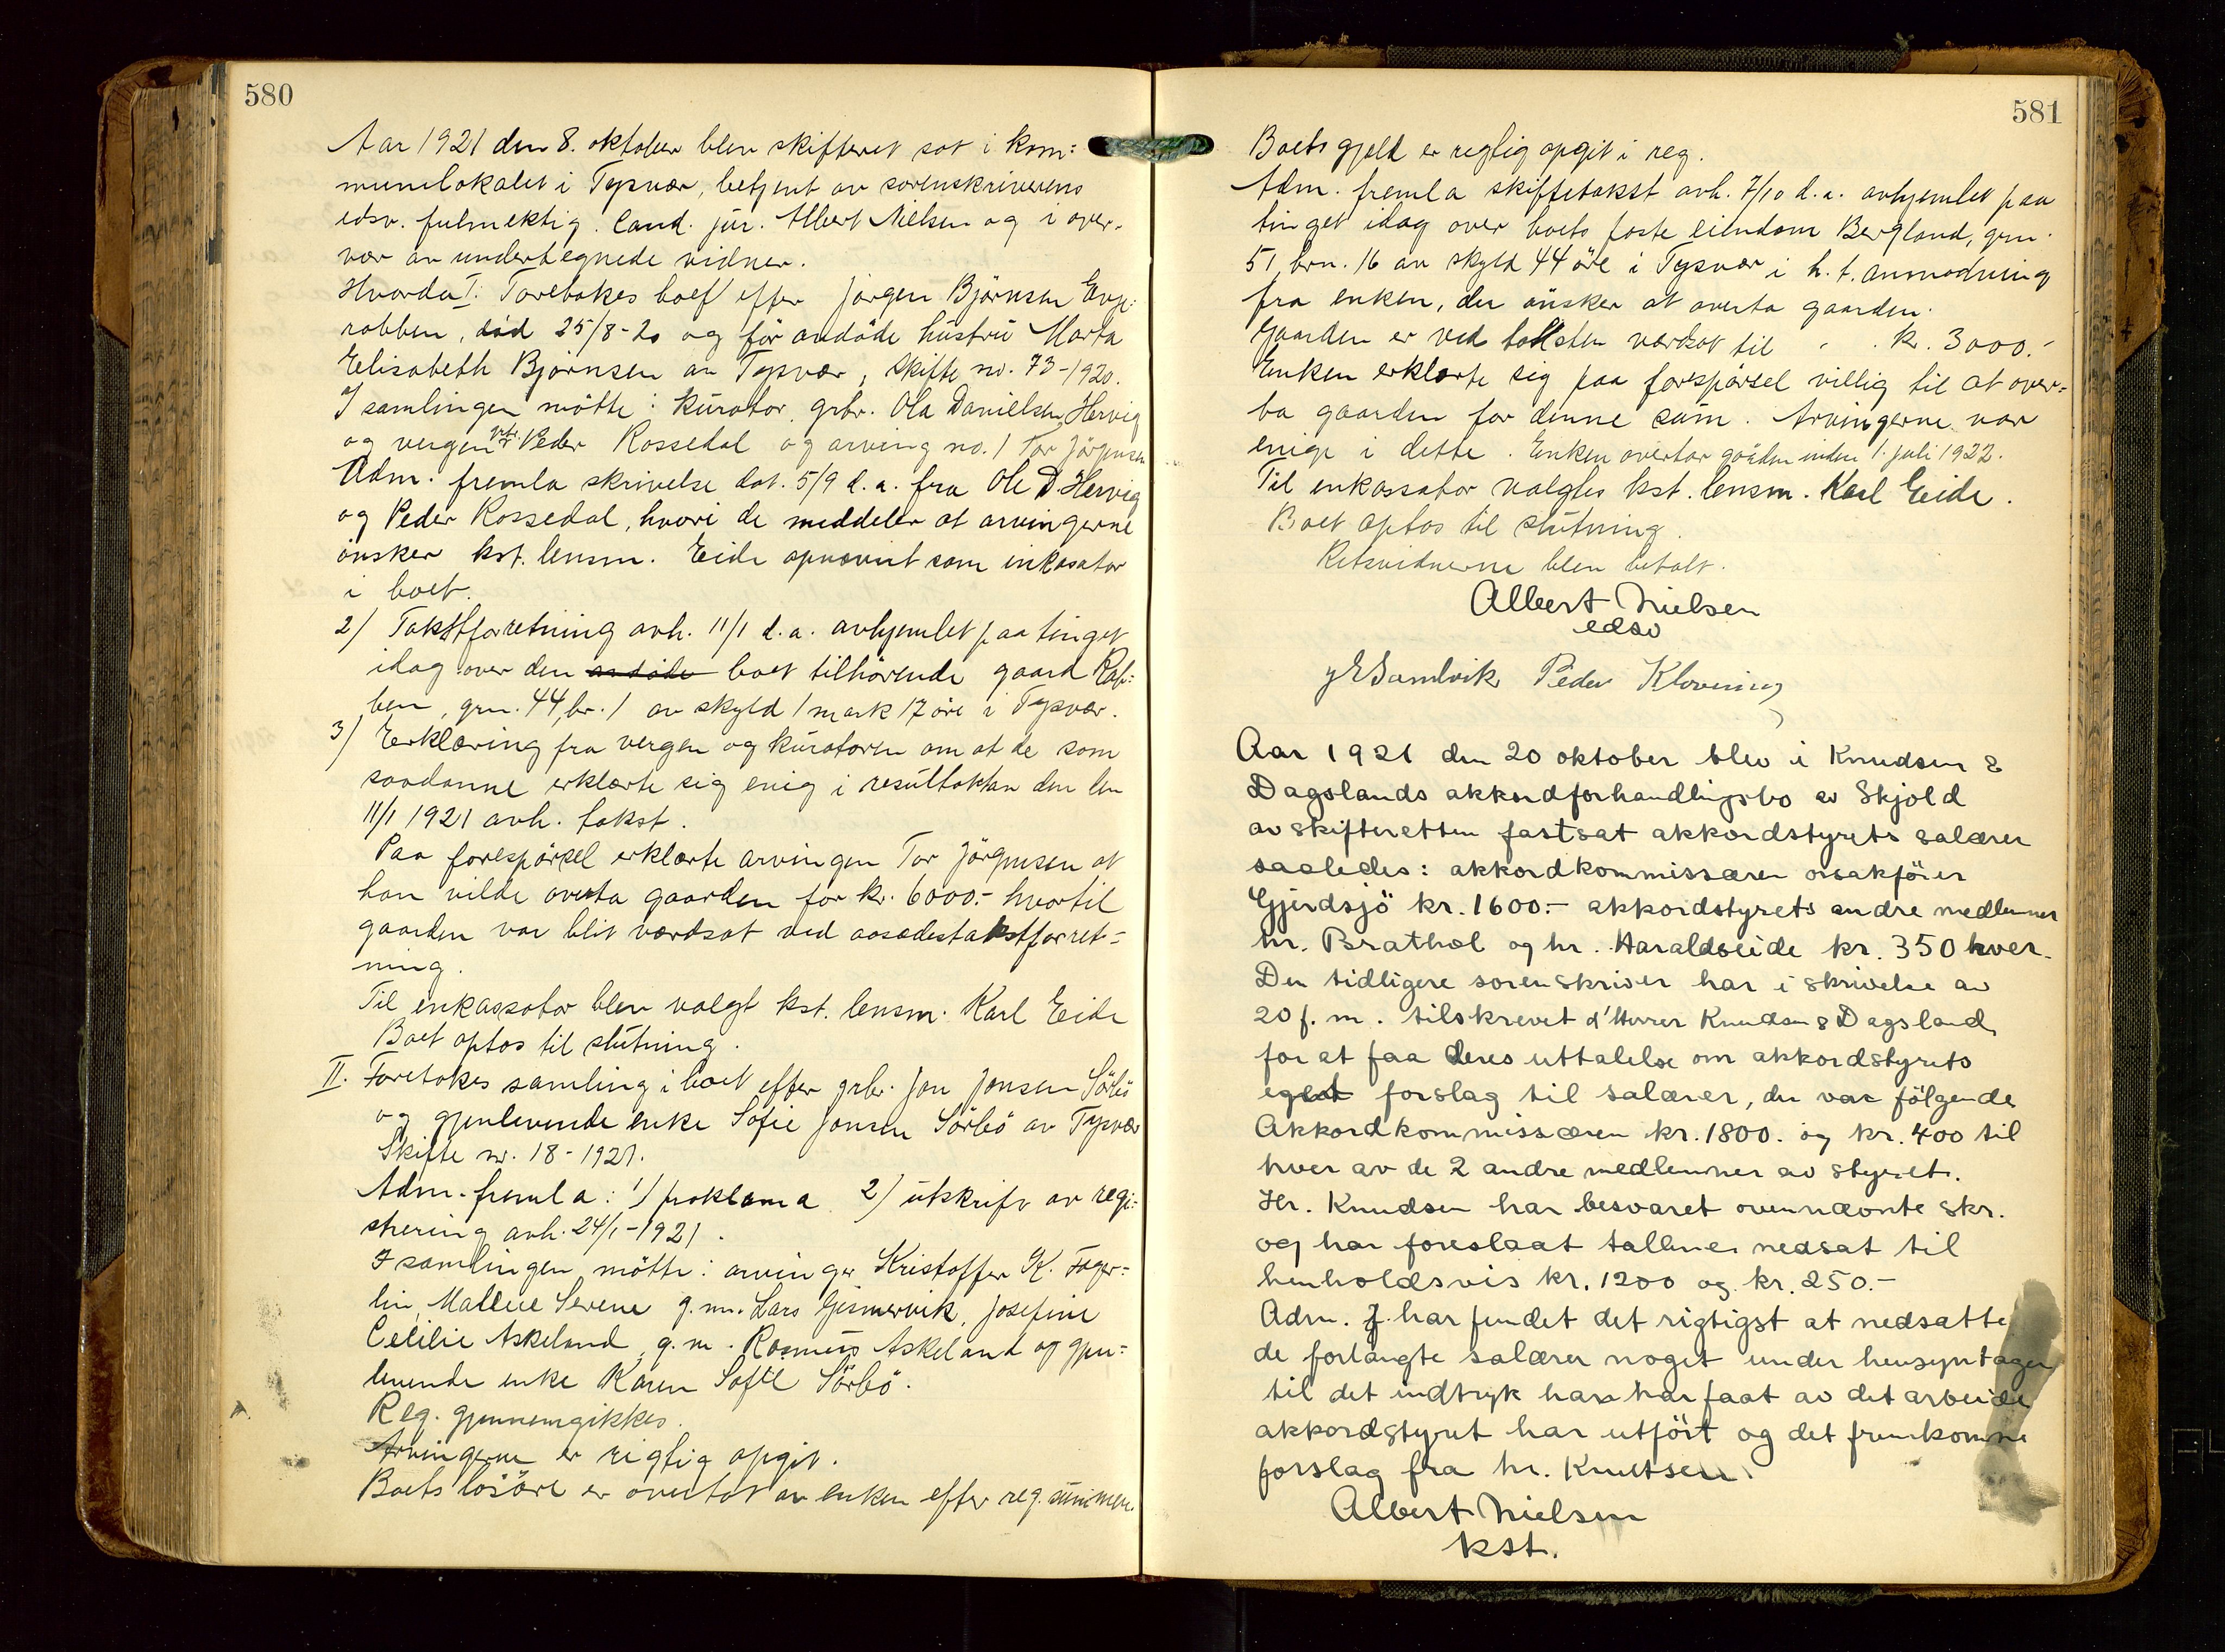 580
Aar 1921 den 8. oktober blev skifteret sat i kom=
munelokalet i Tysvær, betjent av sorenskriverens
edsv. fulmektig. Cand. jur. Albert Nielsen og i over-
vær av undertegnede vidner.
Hvorda I. Foretokes boet efter Jørgen Björnsen
robben, död 25/8-20 og før avdöde hustru Marta
Elisabeth Björnsen av Tysvær, skifte nr. 73-1920.
I samlingen mötte: kurator, grbr. Ola Danielsen Hervig
og vergen Peder Rossedal og arving no. 1 Tor Jörgensen
Adm. fremla skrivelse dat. 5/9 d.a. fra Ole D. Hervig
og Peder Rossedal, hvori de meddeler at arvingerne
önsker kst. lensm. Eide opnævnt som inkasator
i boet.
2) Takstforretning avh. 11/1 d.a. avhjemlet paa tinget
idag over den avdöde boet tilhörende gaard Rob=
ben, grn. 44, br. 1 av skyld 1 mark 17 öre i Tysvær.
3) Erklæring fra vergen og kuratoren om at de som
saadanne erklærte sig enig i resultaktan den
11/1 1921 avh. takst.
Paa forespörsel erklærte arvingen Tor Jörgensen at
han vilde overta gaarden for kr. 6000.- hvortil
gaarden var blit værdsat ved aasædestakstforret=
ning.
Til enkassator blev valgt kst. lensm. Karl Eide
Boet optos til slutning.
II. Foretokes samling i boet efter grbr. Jon Jonsen Sörbö
og gjenlevende enke Sofie Jonsen Sörbö av Tysvær
Skifte nr. 18-1921.
Adm. fremla: 1) proklama 2) utskrift av regi=
strering avh. 24/1-1921.
I samlingen mötte: arvinger Kristoffer K. Fager=
lin, Serene g.m. Lars Gismervik, Josefine
Cecilie Askeland, g.m. Rasmus Askeland og gjen=
levende enke Karen Sofie Sörbö.
Reg. gjennemgikkes.
Arvingerne er rigtig opgit.
Boets lösöre er overtat av enken efter reg. summen.
581
Boets gjeld er regtig opgit i reg.
Adm. fremla skiftetakst avh. 7/10 d.a. avhjemlet paa
tinget idag over boets faste eiendom Bergland, grn.
51, brn. 16 av skyld 44 öre i Tysvær i h.t. anmodning
fra enken, der önsker at overta gaarden.
Gaarden er ved taksten værdsat til - . kr. 3000.-
Enken erklærte seg paa forespörsel villig til at over=
ta gaarden for denne sum. Arvingerne var
enige i dette. Enken overtar gården inden 1. juli 1922.
Til enkassator valgtes kst. lensm. Karl Eide.
Boet optos til slutning.
Retsvidnerne blev betalt.
Albert Nielsen
edsv
Sandvik Peder Klovening
Aar 1921 den 20 oktober blev i Knudsen &
Dagslands akkordforhandlingsbo av Skjold
av skifteretten fastsat akkordstyrets salærer
saaledes: akkordkommissæren orsakförer
Gjerdsjö kr. 1600.- akkordstyrets andre medlemmer
hr. Brathol og hr. Haraldseide kr. 350 hver.
Den tidligere sorenskriver har i skrivelse av
20 f.m. tilskrevet d'Herrer Knudsen & Dagsland
for at faa deres uttalelse om akkordstyrets
eget forslag til salærer, der var fölgende
Akkordkommissæren kr. 1800. og kr. 400 til
hver av de 2 andre medlemmer av styret.
Hr. Knudsen har besvaret ovennævnte skr.
og har foreslaat tallene nedsat til
henholdsvis kr. 1200 og kr. 250.-
Adm. har fundet det rigtigst at nedsatte
de forlangte salærer noget under hensyntagen
til det indtryk han har faat av det arbeide
akkordstyret har utfört og det fremkomne
forslag fra hr. Knutsen.
Albert Nielsen
kst.